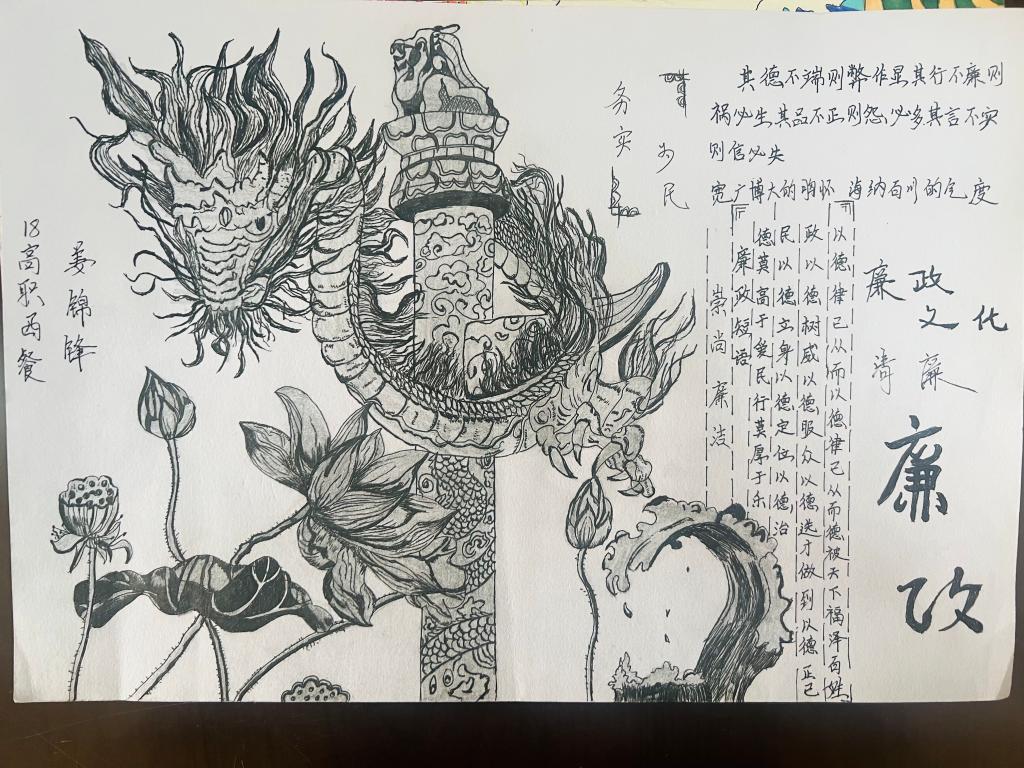 其德不端则弊作显其行不廉则
祸必生其品不正则怨必多其言不实
则信必失
宽广博大的胸怀 海纳百川的气度
务实
为民
廉政
文化
清廉
廉政
以德律己从而以德律己从而德被天下福泽百姓
政以德树威以德服众以德选才做到以德正己
民以德立身以德定位以德治
德莫高于爱民行莫厚于乐
廉政短语
崇尚廉洁
姜锦锋
18高职西餐